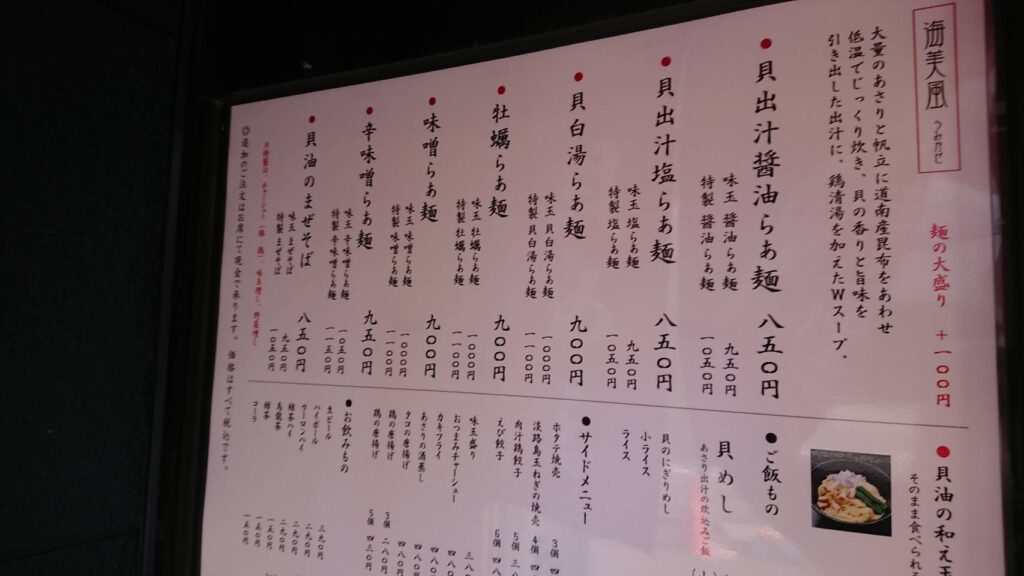 海美風
うみかぜ
麺の大盛り ＋一〇〇円
大量のあさりと帆立に道南産昆布をあわせ
低温でじっくり炊き、貝の香りと旨味を
引き出した出汁に、鶏清湯を加えたWスープ。
●貝出汁醤油らぁ麺 八五〇円
味玉 醤油らぁ麺 九五〇円
特製 醤油らぁ麺 一〇五〇円
●貝出汁塩らぁ麺 八五〇円
味玉 塩らぁ麺 九五〇円
特製 塩らぁ麺 一〇五〇円
●貝白湯らぁ麺 九〇〇円
味玉 貝白湯らぁ麺 一〇〇〇円
特製 貝白湯らぁ麺 一一〇〇円
●牡蠣らぁ麺 九〇〇円
味玉 牡蠣らぁ麺 一〇〇〇円
特製 牡蠣らぁ麺 一一〇〇円
●味噌らぁ麺 九〇〇円
味玉 味噌らぁ麺 一〇〇〇円
特製 味噌らぁ麺 一一〇〇円
●辛味噌らぁ麺 九五〇円
味玉 辛味噌らぁ麺 一〇五〇円
特製 辛味噌らぁ麺 一一五〇円
●貝油のまぜそば 八五〇円
味玉 まぜそば 九五〇円
特製 まぜそば 一〇五〇円
◎追加のご注文はお席にて現金で承ります。 価格はすべて税込です。
●貝油の和え玉
そのまま食べられる
●ご飯もの
貝めし
あさり出汁の炊込みご飯
貝のにぎりめし
小ライス
ライス
●サイドメニュー
ホタテ焼売 3個
淡路島玉ねぎの焼売 4個
肉汁鶏餃子 5個
えび餃子 6個
味玉盛り
おつまみチャーシュー
カキフライ
あさりの酒蒸し
タコの唐揚げ
鶏の唐揚げ 3個
鶏の唐揚げ 5個
●お飲みもの
生ビール
ハイボール
ウーロンハイ
緑茶ハイ
烏龍茶
緑茶
コーラ